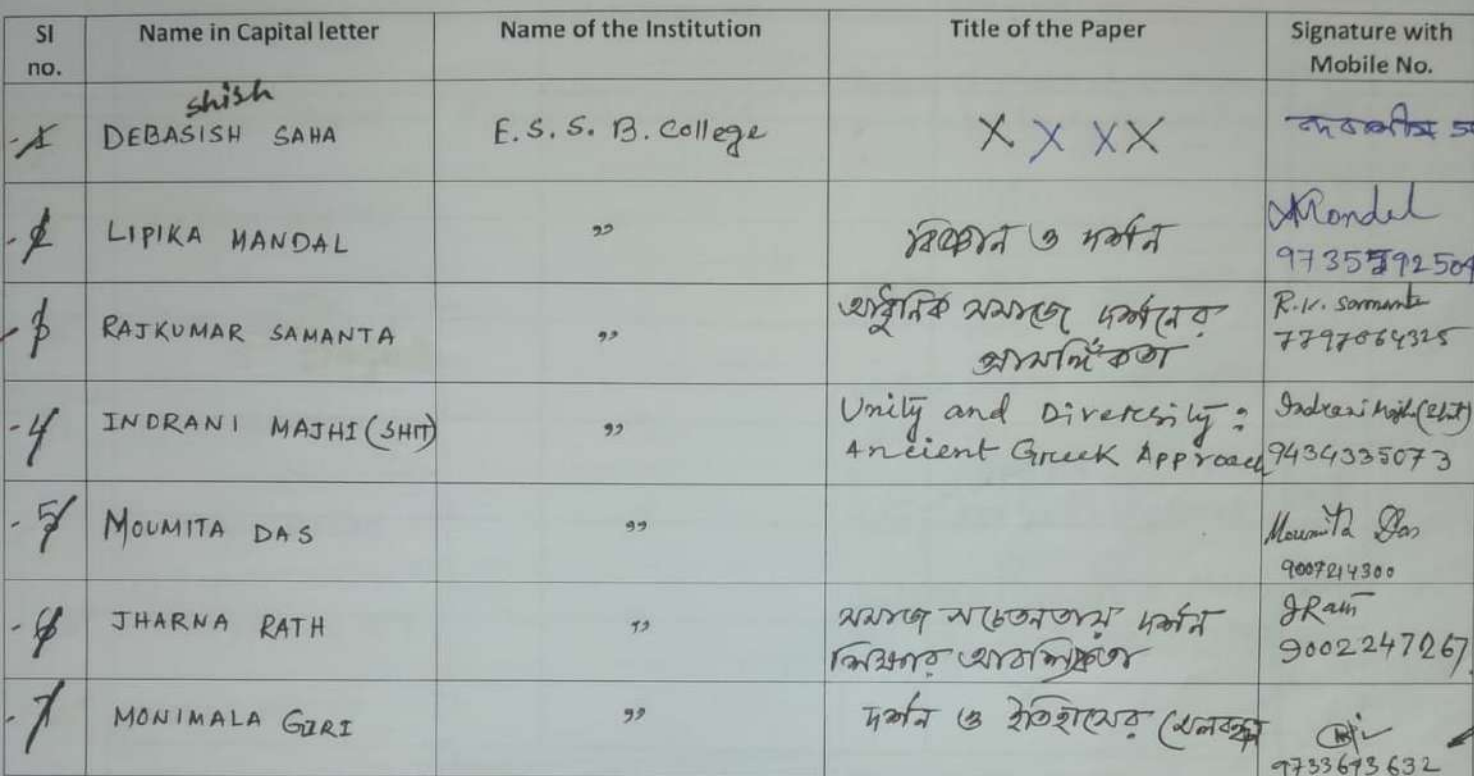 Sl no. Name in Capital letter Name of the Institution Title of the Paper Signature with Mobile No.
shish
1 DEBASISH SAHA E. S. S. B. College X X X X
2 LIPIKA MANDAL " বিজ্ঞান ও দর্শন Mondal
9735592504
3 RAJKUMAR SAMANTA " আধুনিক সমাজে দর্শনের R.K. Samanta
প্রাসঙ্গিকতা 7797064325
4 INDRANI MAJHI (SHIT) " Unity and Diversity : Indrani Majhi (Shit)
Ancient Greek Approach 9434335073
5 MOUMITA DAS " Moumita Das
9007214300
6 JHARNA RATH " সমাজ সচেতনতায় দর্শন JRath
শিক্ষার আবশ্যিকতা 9002247267
7 MONIMALA GIRI " দর্শন ও ইতিহাসের মেলবন্ধন
9733693632